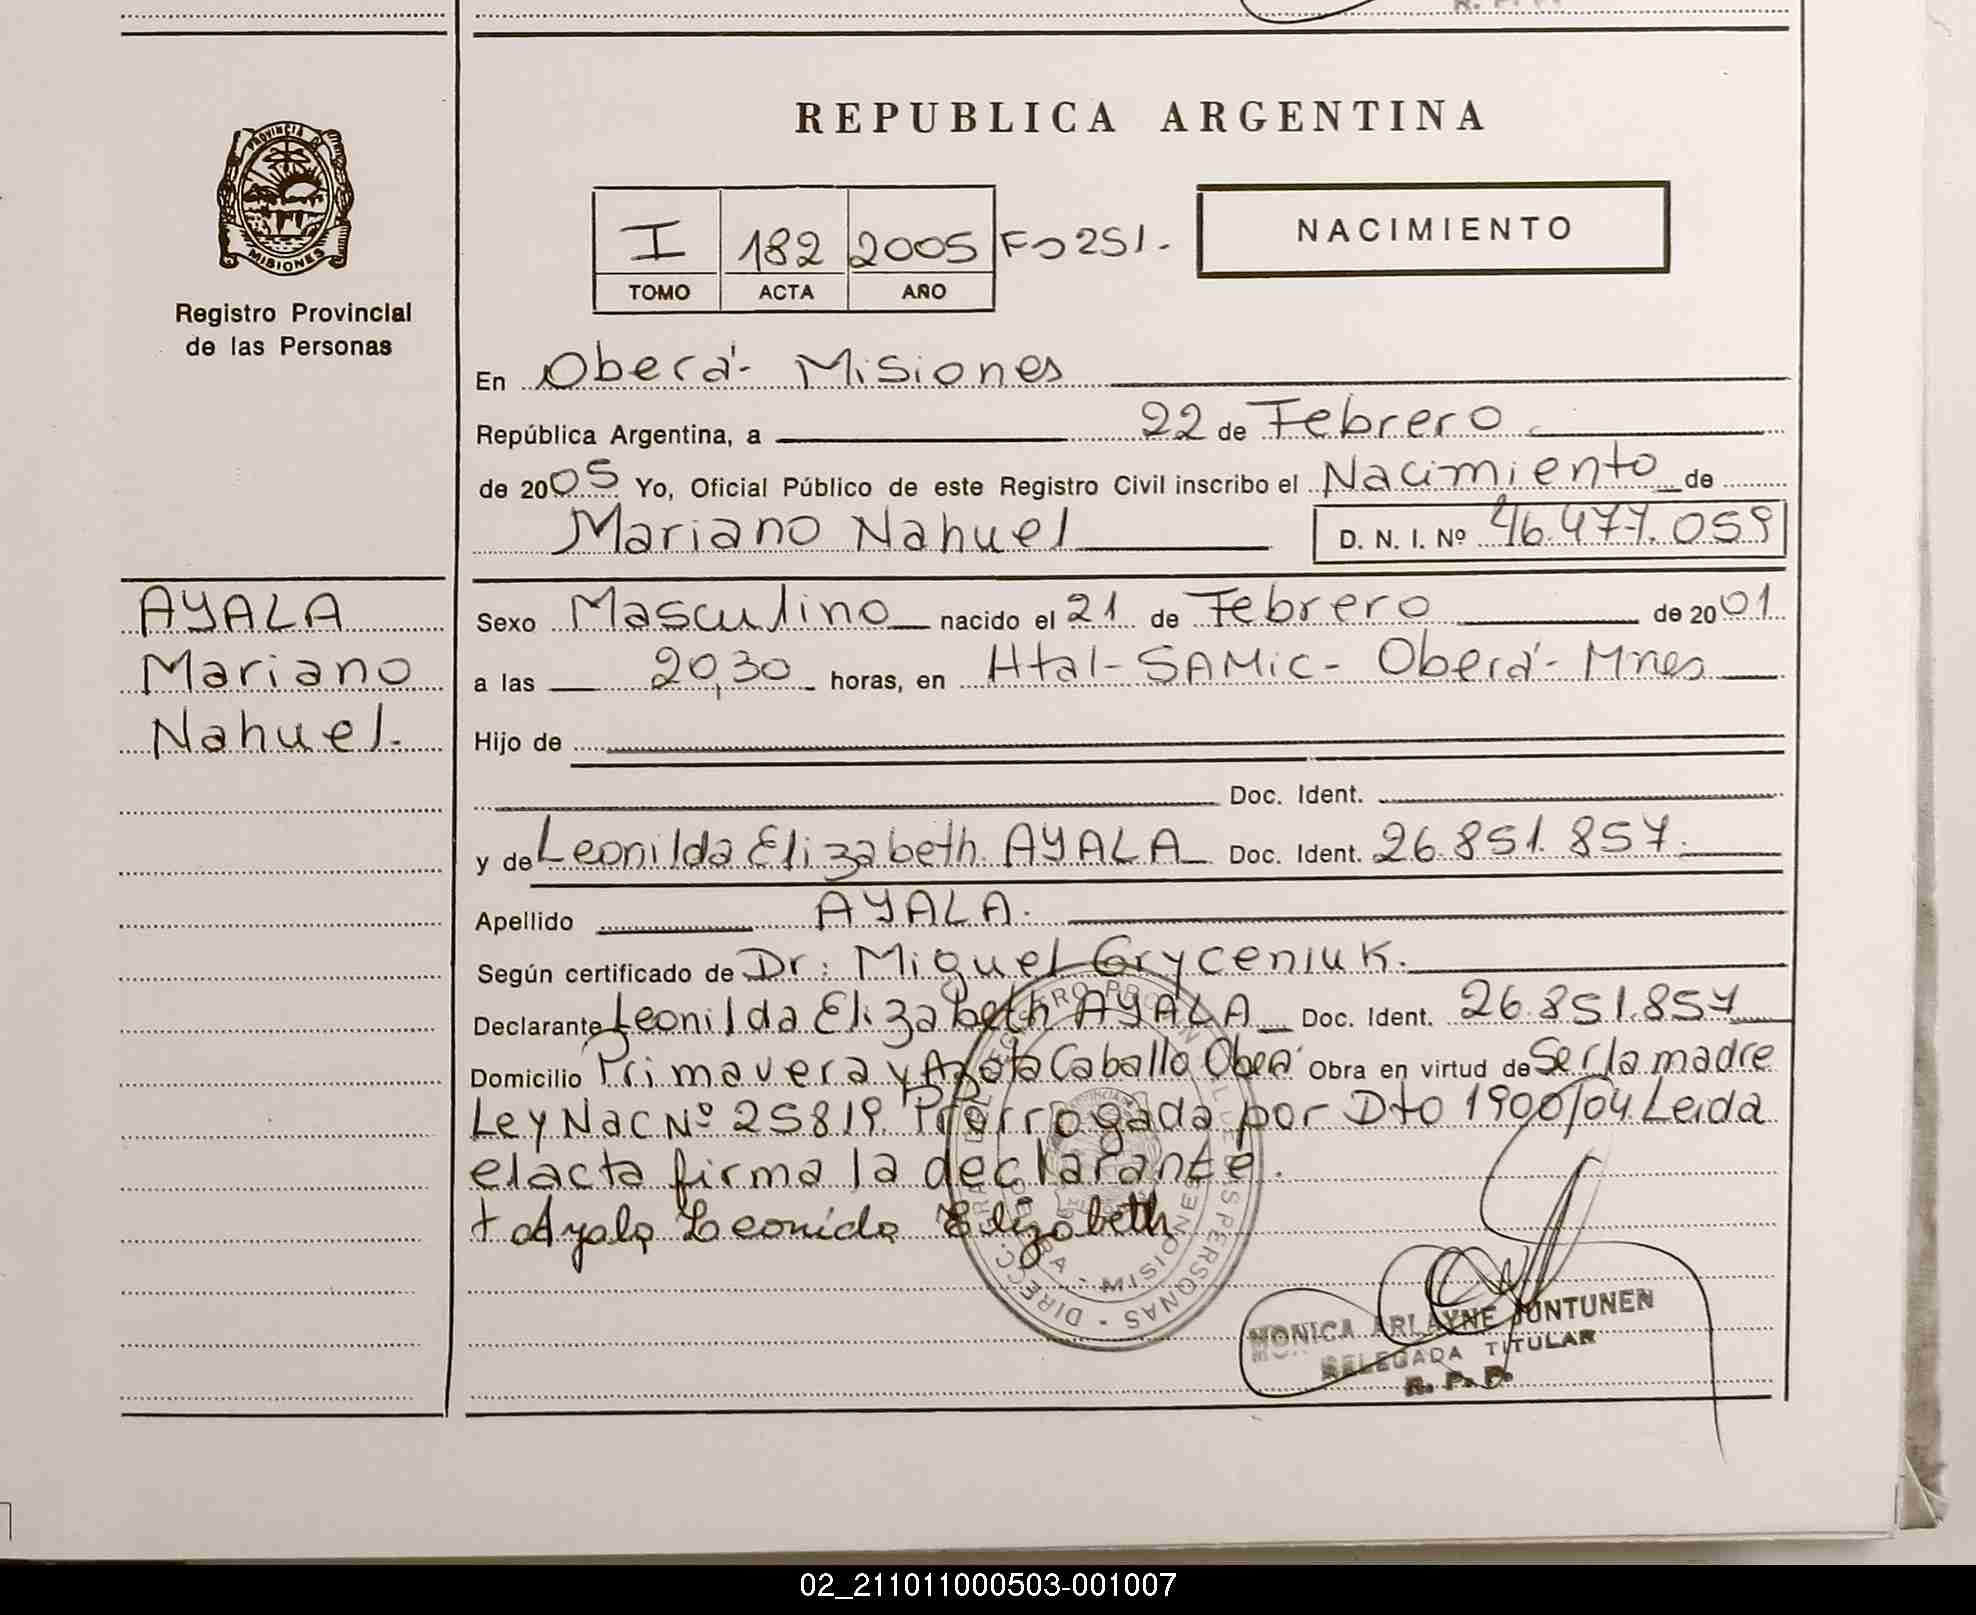 R. P. P.
REPUBLICA ARGENTINA
PROVINCIA DE
MISIONES
Registro Provincial
de las Personas
I 182 2005 Fo 251.-
TOMO ACTA AÑO
NACIMIENTO
En Oberá- Misiones
República Argentina, a 22 de Febrero
de 2005 Yo, Oficial Público de este Registro Civil inscribo el Nacimiento de
Mariano Nahuel D. N. I. Nº 46.477.059
AYALA
Mariano
Nahuel.-
Sexo Masculino nacido el 21 de Febrero de 2001
a las 20,30 horas, en Htal-SAMIC- Oberá- Mnes
Hijo de
Doc. Ident.
y de Leonilda Elizabeth AYALA Doc. Ident. 26.851.857.
Apellido AYALA.
Según certificado de Dr: Miguel Gryceniuk.
Declarante Leonilda Elizabeth AYALA Doc. Ident. 26.851.857
Domicilio Primavera y Azota Caballo Oberá Obra en virtud de Ser la madre
Ley Nac Nº 25819. Prorrogada por Dto 1900/04. Leida
el acta firma la declarante.
+ Ayala Leonida Elizabeth
MISIONES
DIRECC PERSONAS
MONICA ARLAYNE JUNTUNEN
DELEGADA TITULAR
R. P. P.
02_211011000503-001007